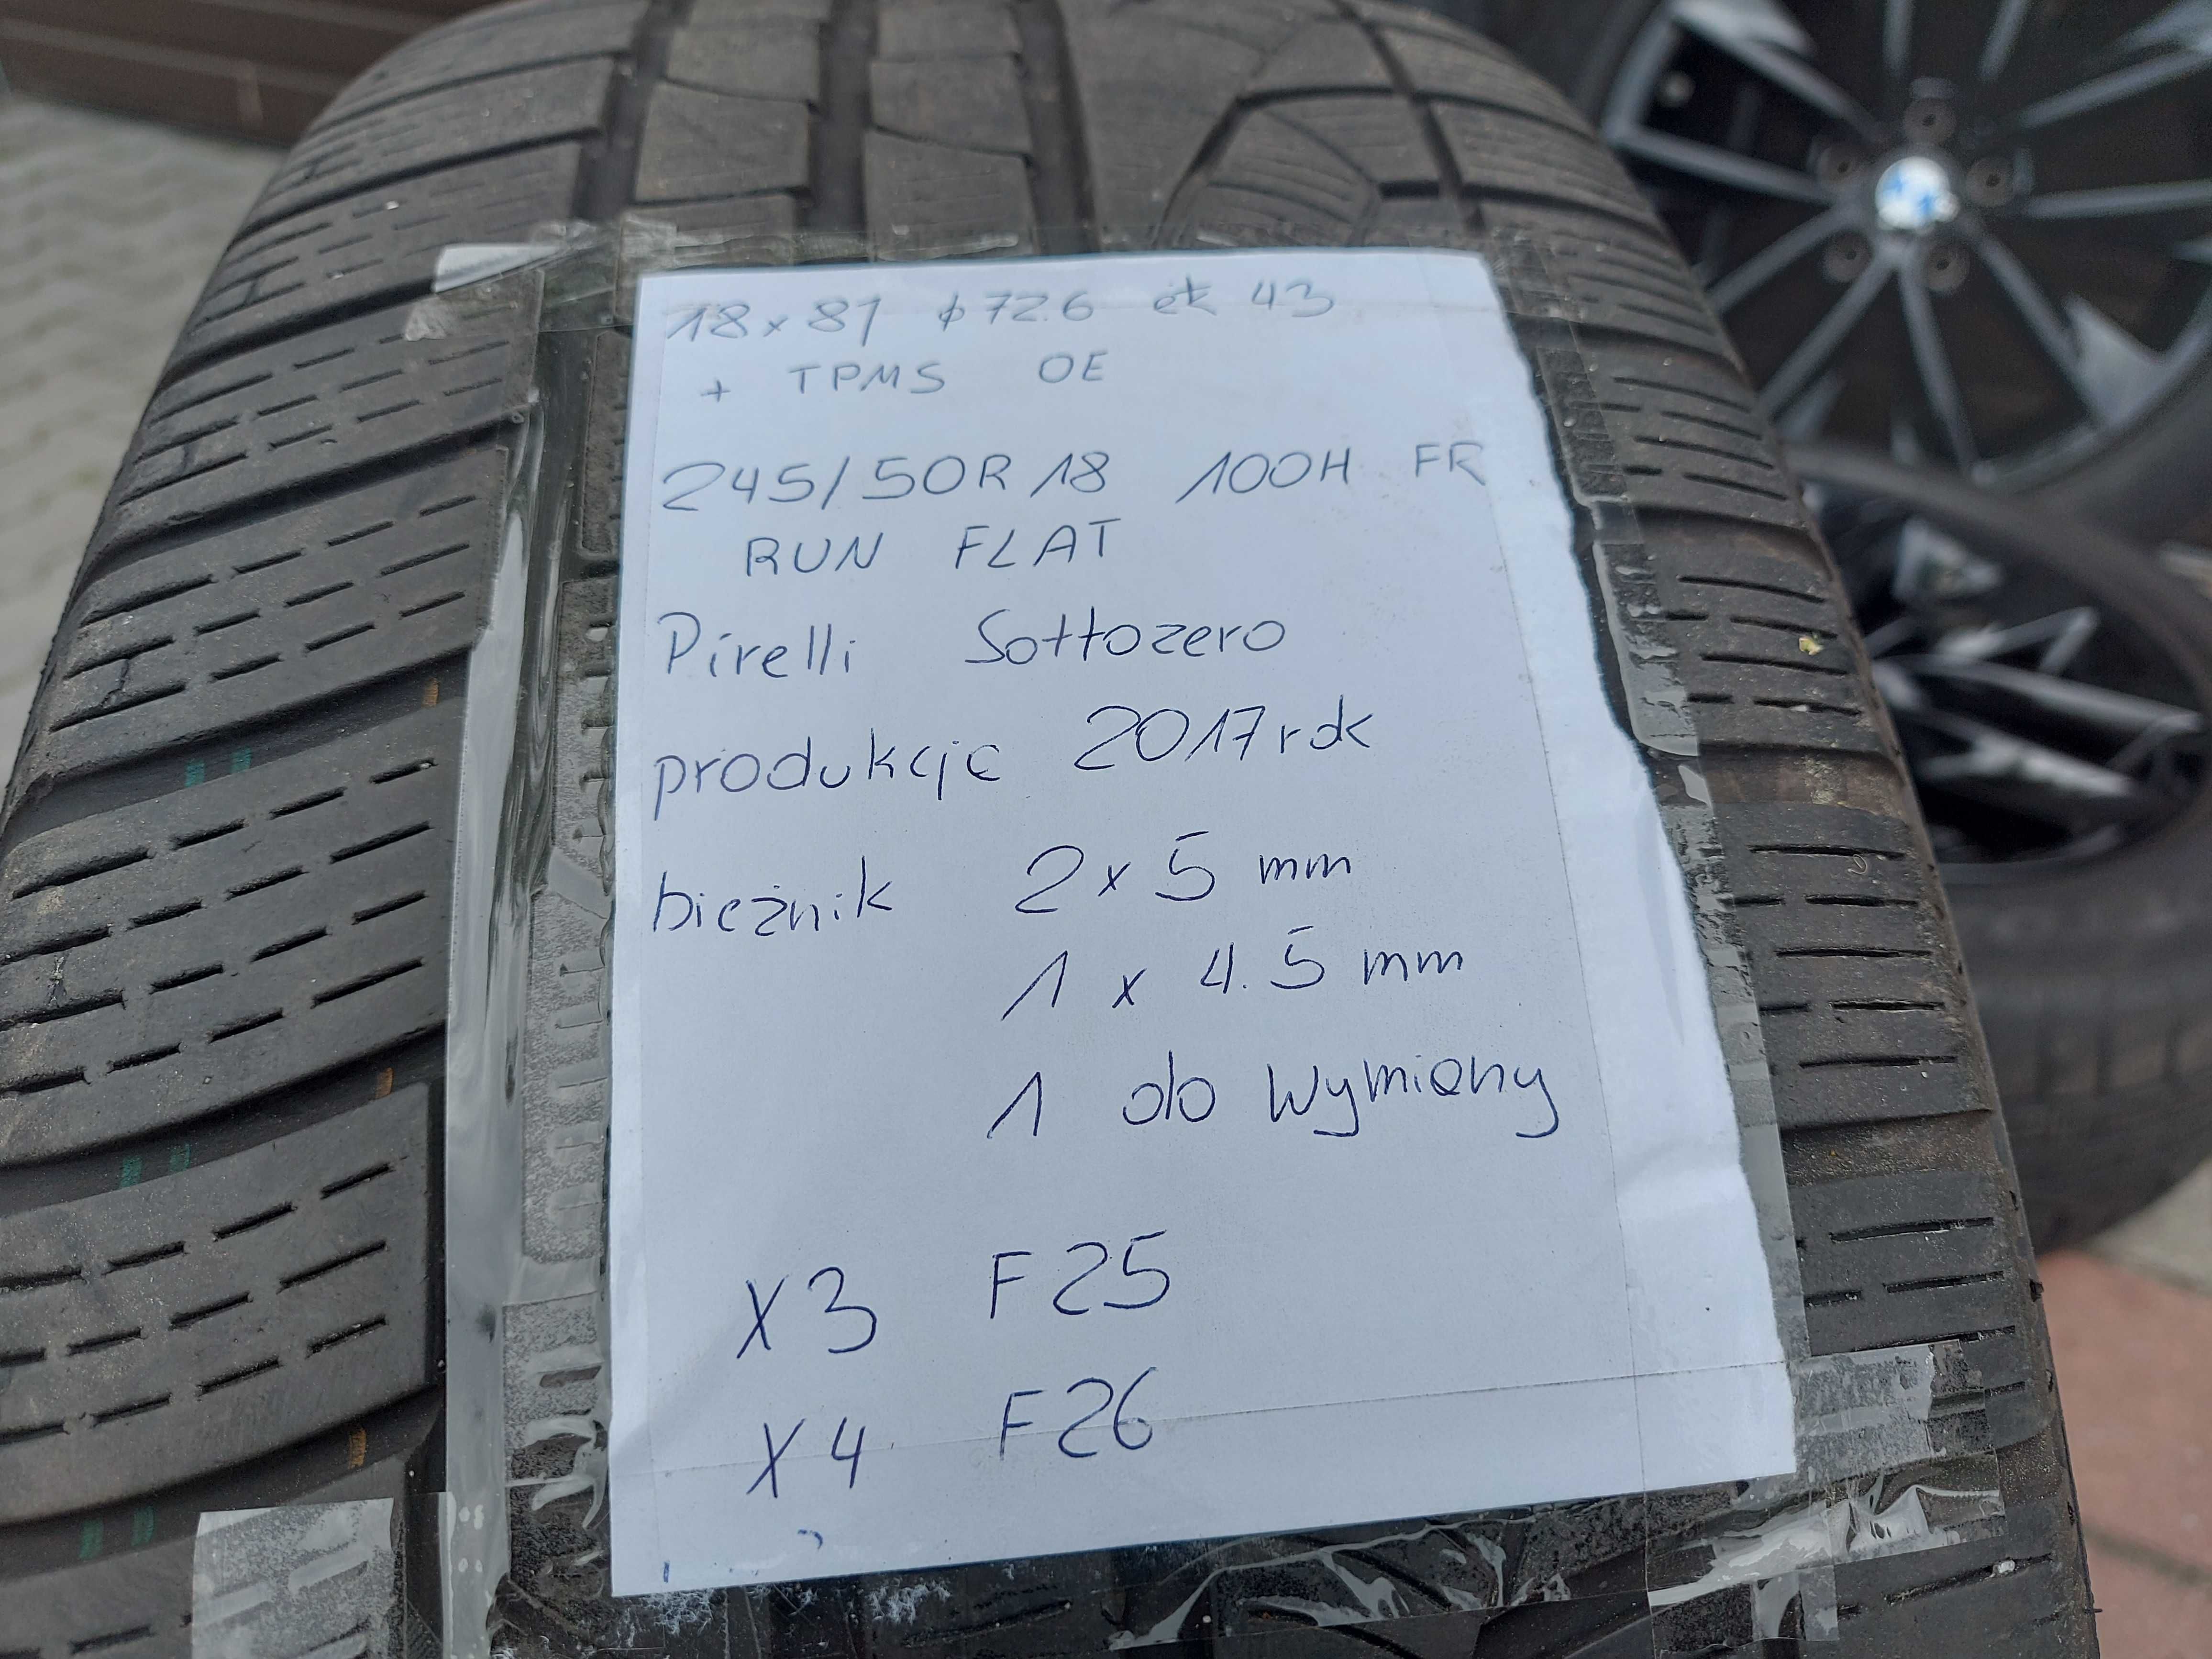 18 x 8J φ 72.6 et 43
+ TPMS OE
245/50R 18 100H FR
RUN FLAT
Pirelli Sottozero
produkcja 2017 rok
bieżnik 2 x 5 mm
1 x 4.5 mm
1 do wymiany
X3 F25
X4 F26